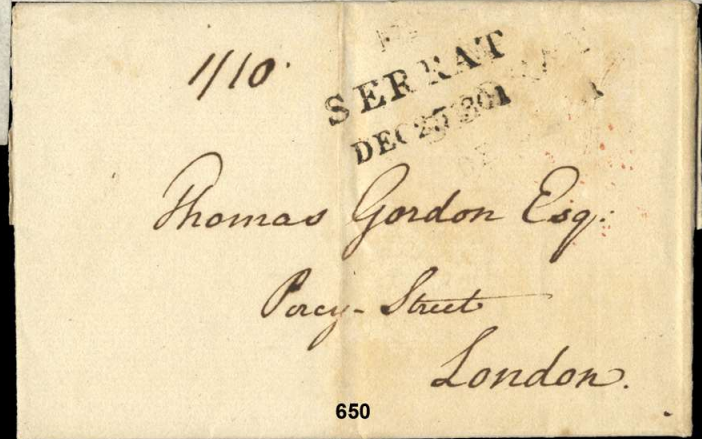 1/10
SERRAT
DEC 25 1801
Thomas Gordon Esq:
Percy-Street
London.
650